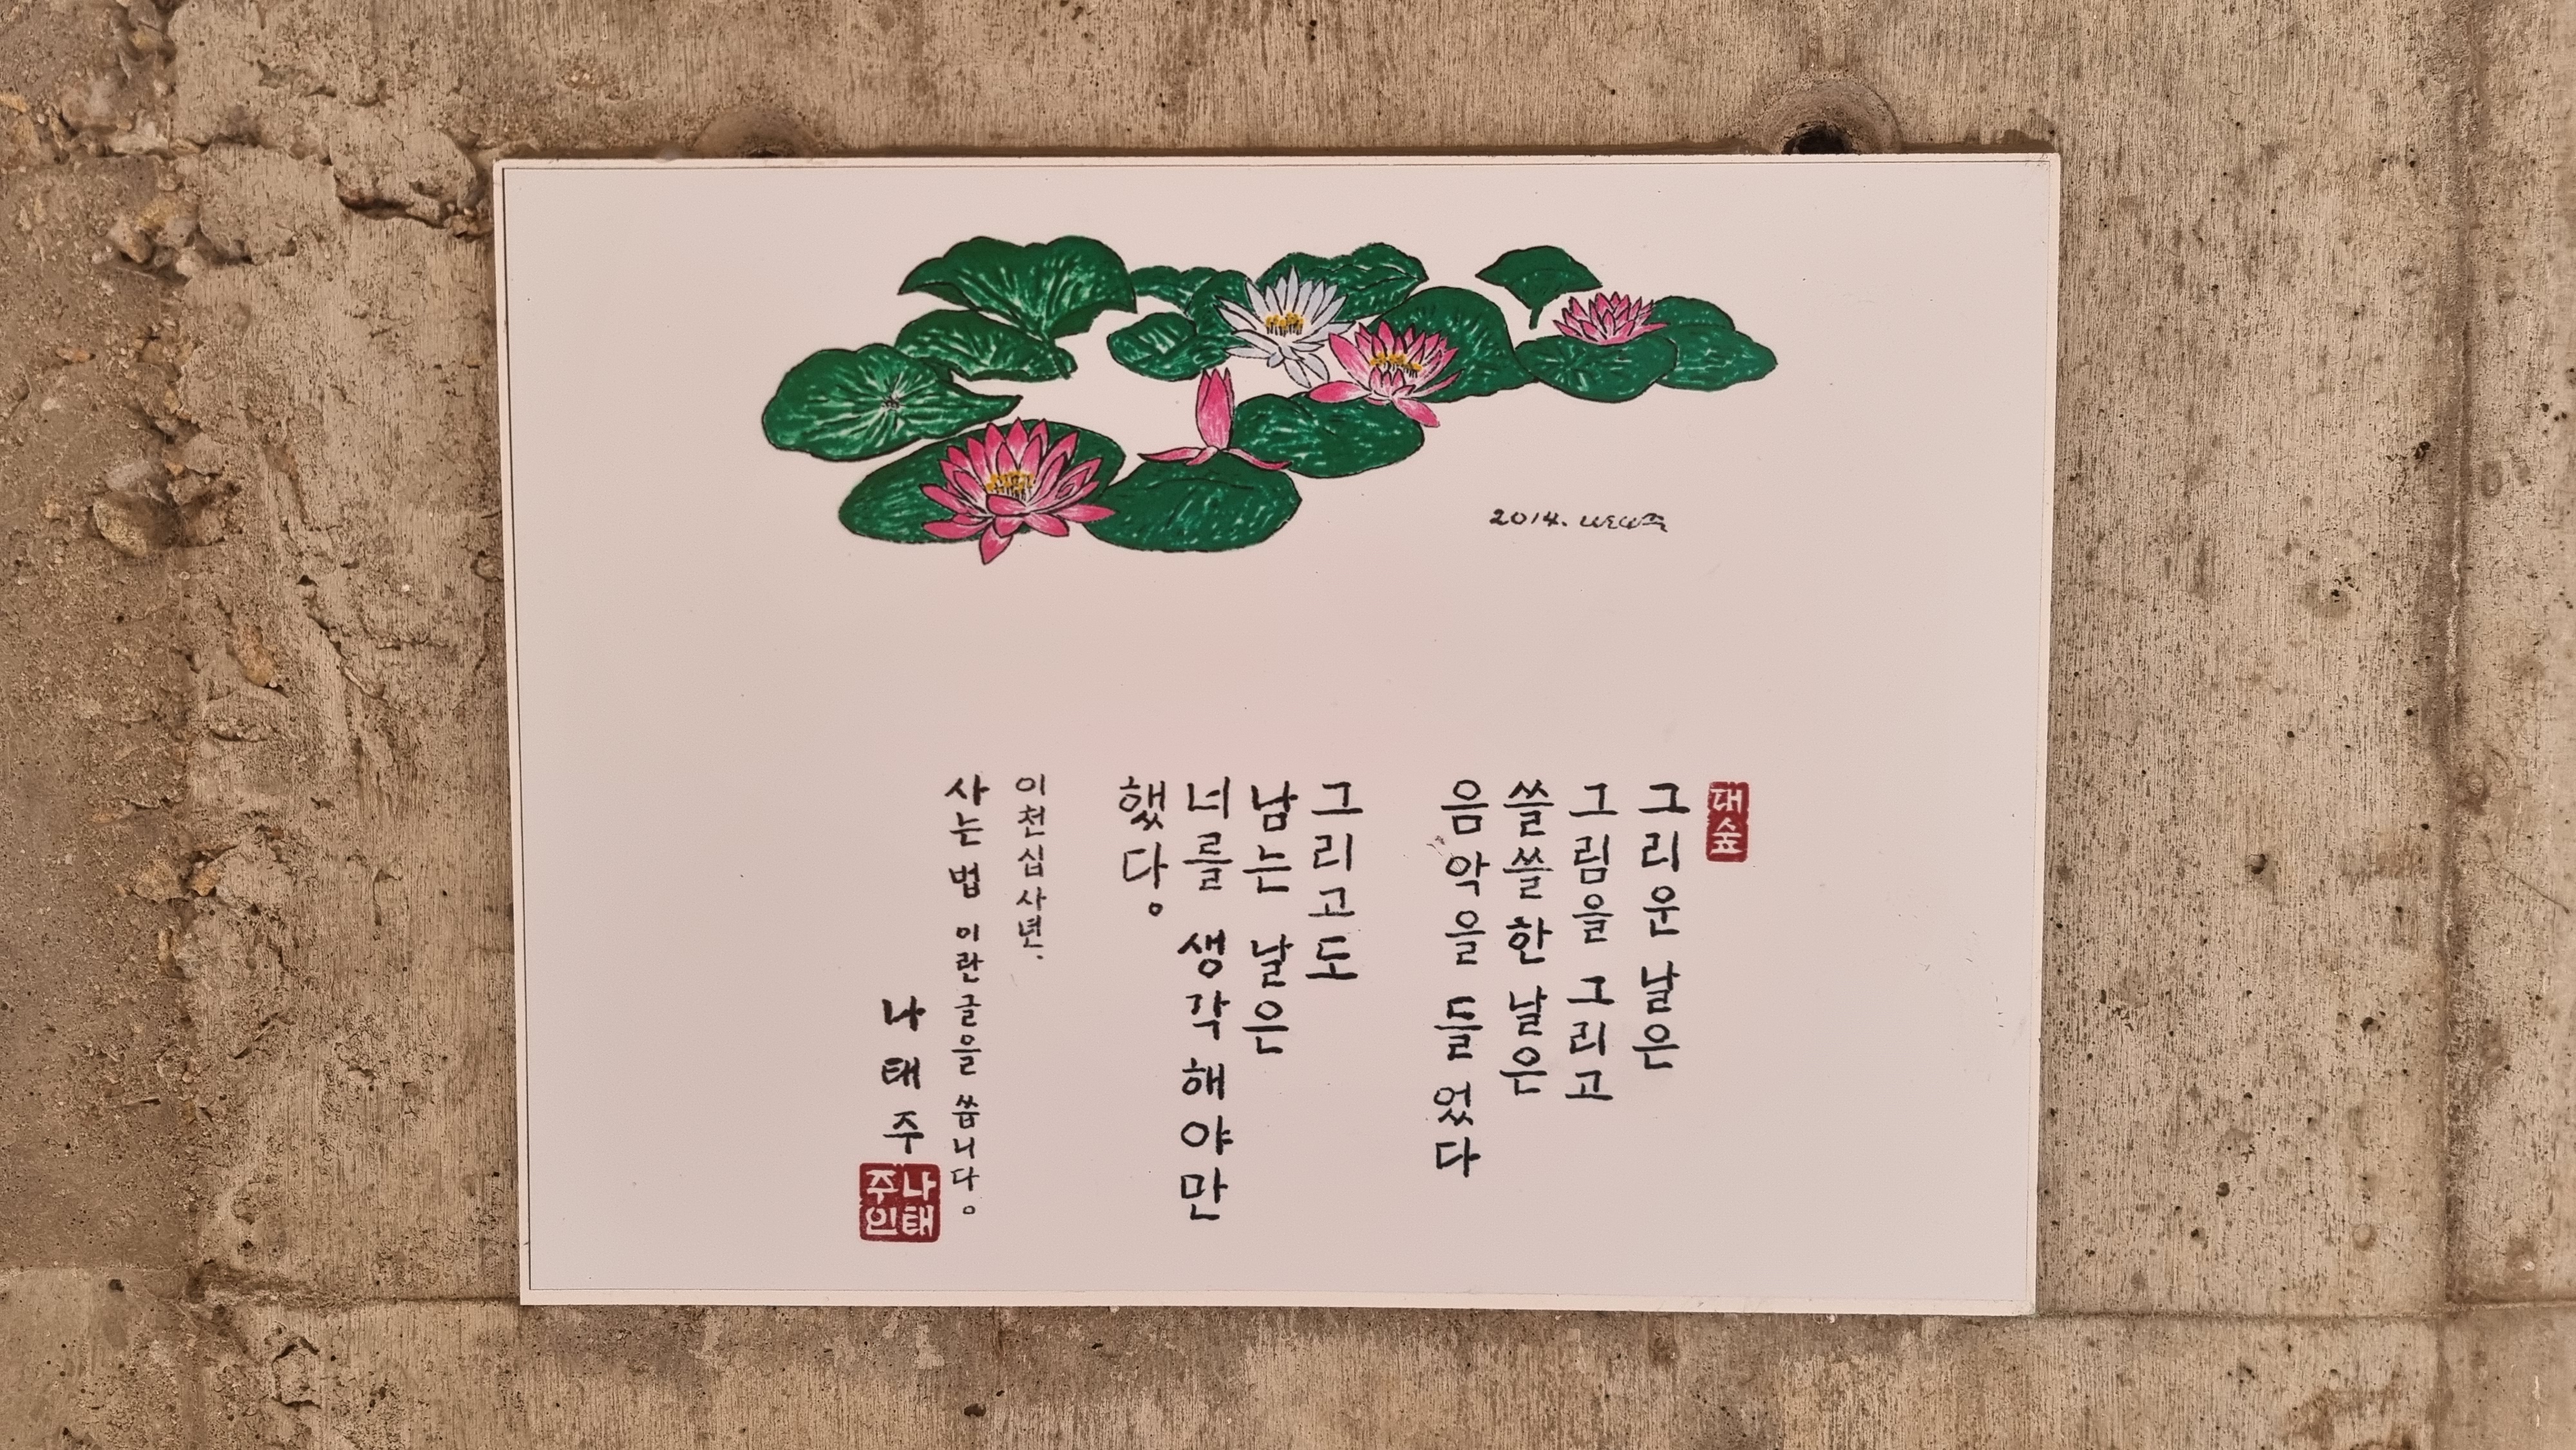 2014. 나태주
대숲
그리운 날은
그림을 그리고
쓸쓸한 날은
음악을 들었다
그리고도
남는 날은
너를 생각해야만
했다。
이천십사년.
사는법 이란 글을 씁니다。
나태주
나태
주인